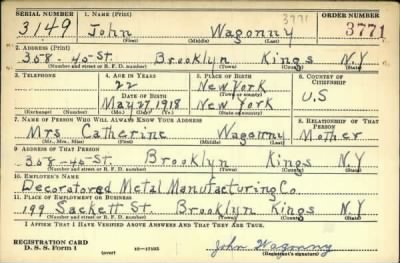 SERIAL NUMBER 1. NAME (Print) 3771 ORDER NUMBER
3149 John Wagonny 3771
(First) (Middle) (Last)
2. ADDRESS (Print)
308-40-St. Brooklyn Kings N.Y
(Number and street or R. F. D. number) (Town) (County) (State)
3. TELEPHONE 4. AGE IN YEARS 5. PLACE OF BIRTH 6. COUNTRY OF CITIZENSHIP
22 New York
DATE OF BIRTH (Town or county) U.S
May 27 1918 New York
(Exchange) (Number) (Mo.) (Day) (Yr.) (State or country)
7. NAME OF PERSON WHO WILL ALWAYS KNOW YOUR ADDRESS 8. RELATIONSHIP OF THAT PERSON
Mrs Catherine Wagonny Mother
(Mr., Mrs., Miss) (First) (Middle) (Last)
9. ADDRESS OF THAT PERSON
308-40-St. Brooklyn Kings N.Y
(Number and street or R. F. D. number) (Town) (County) (State)
10. EMPLOYER'S NAME
Decoratored Metal Manufacturing Co
11. PLACE OF EMPLOYMENT OR BUSINESS
199 Sackett St. Brooklyn Kings N.Y
(Number and street or R. F. D. number) (Town) (County) (State)
I AFFIRM THAT I HAVE VERIFIED ABOVE ANSWERS AND THAT THEY ARE TRUE.
REGISTRATION CARD
D. S. S. Form 1 (over) John Wagonny
(Registrant's signature)